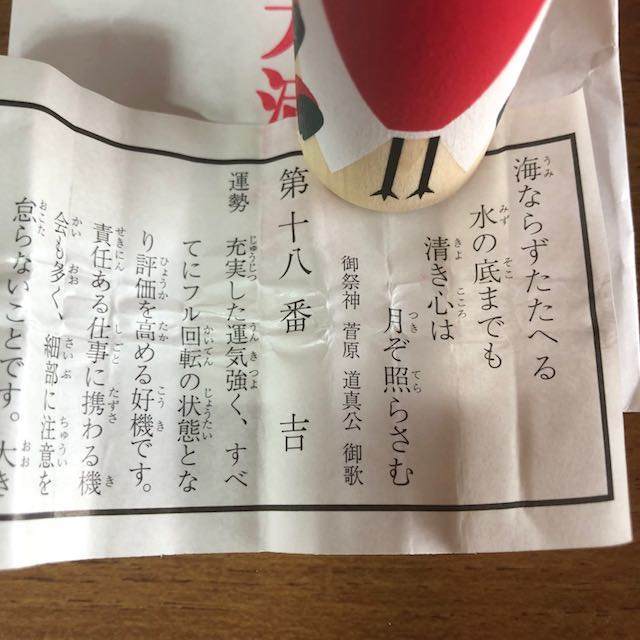 海ならずたたへる
水の底までも
清き心は
月ぞ照らさむ
御祭神 菅原 道真公 御歌
第十八番 吉
運勢 充実した運気強く、すべ
てにフル回転の状態とな
り評価を高める好機です。
責任ある仕事に携わる機
会も多く、細部に注意を
怠らないことです。大き